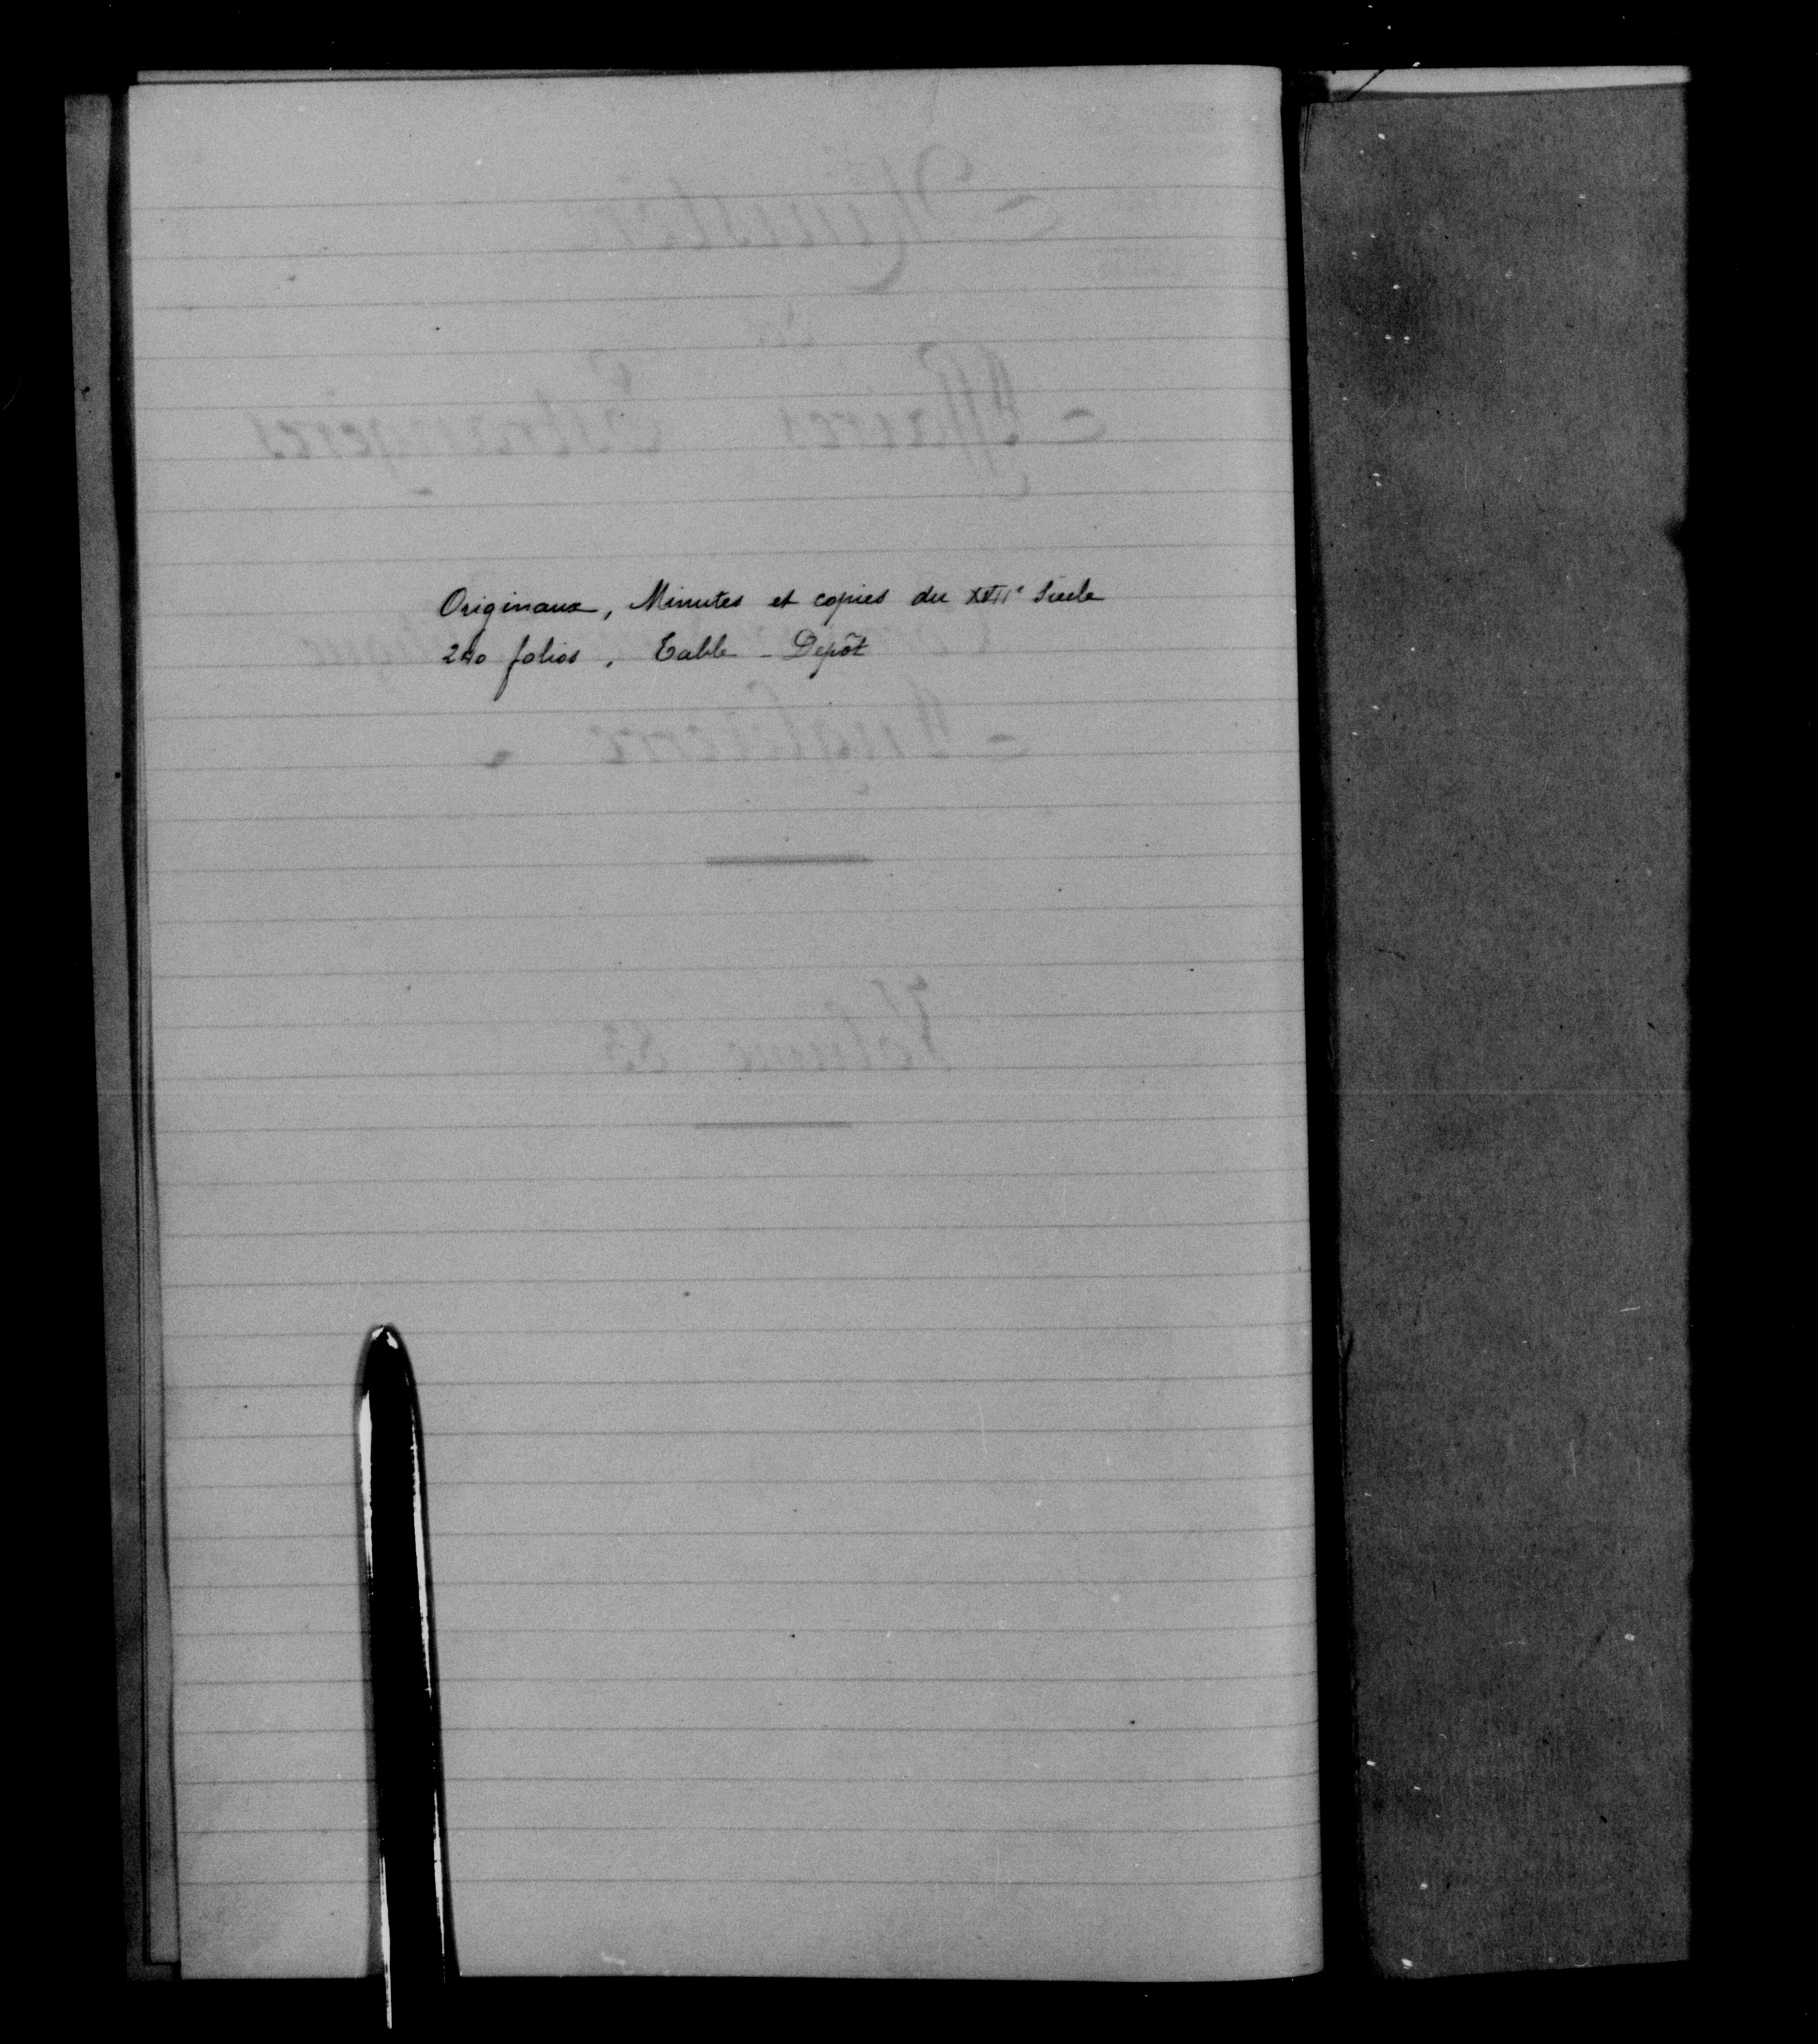 Originaux, Minutes et copies du XVIIe Siècle
240 folios, Table - Dépôt